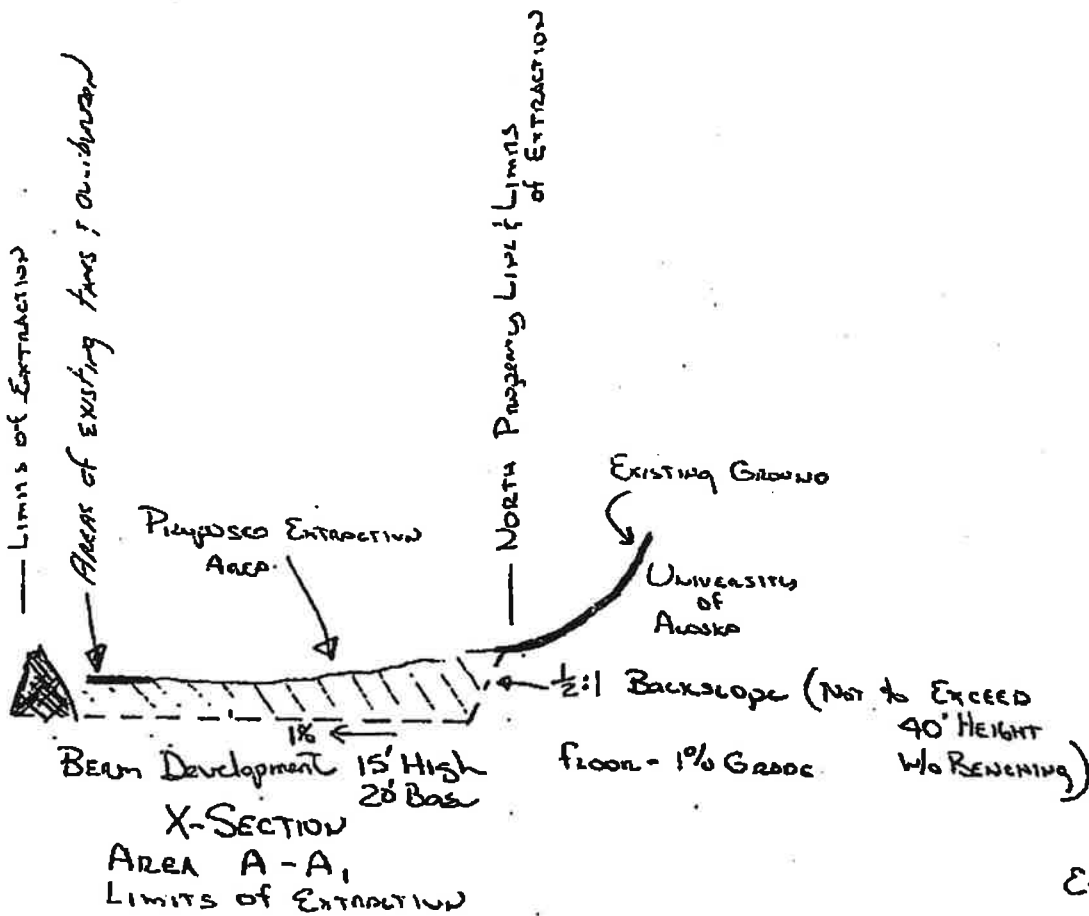 Limits of Extraction
Areas of existing
North Property Line & Limits
of Extraction
Existing Ground
Proposed Extraction
Area
University
of
Alaska
½:1 Backslope (Not to Exceed
40' Height
w/o Benching)
1% ←
Berm Development 15' High
20' Base
floor - 1% Grade
X-Section
Area A-A₁
Limits of Extraction